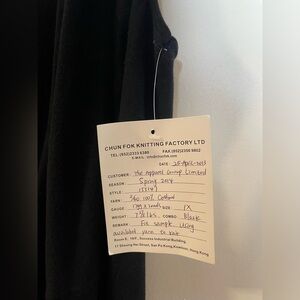 CHUN FOK KNITTING FACTORY LTD
TEL: (852)2333 5380 FAX: (852)2356 9802
E-MAIL: info@chunfok.com
DATE: 25-April-2013
CUSTOMER: The Apparel Group Limited
SEASON: Spring 2014
STYLE:
YARN: 100% Cotton
GAUGE SIZE 1X
WEIGHT lbs COMBO Black
REMARK Fit sample using
available yarn to knit
Room E, 10/F., Success Industrial Building,
17 Sheung Hei Street, San Po Kong, Kowloon, Hong Kong